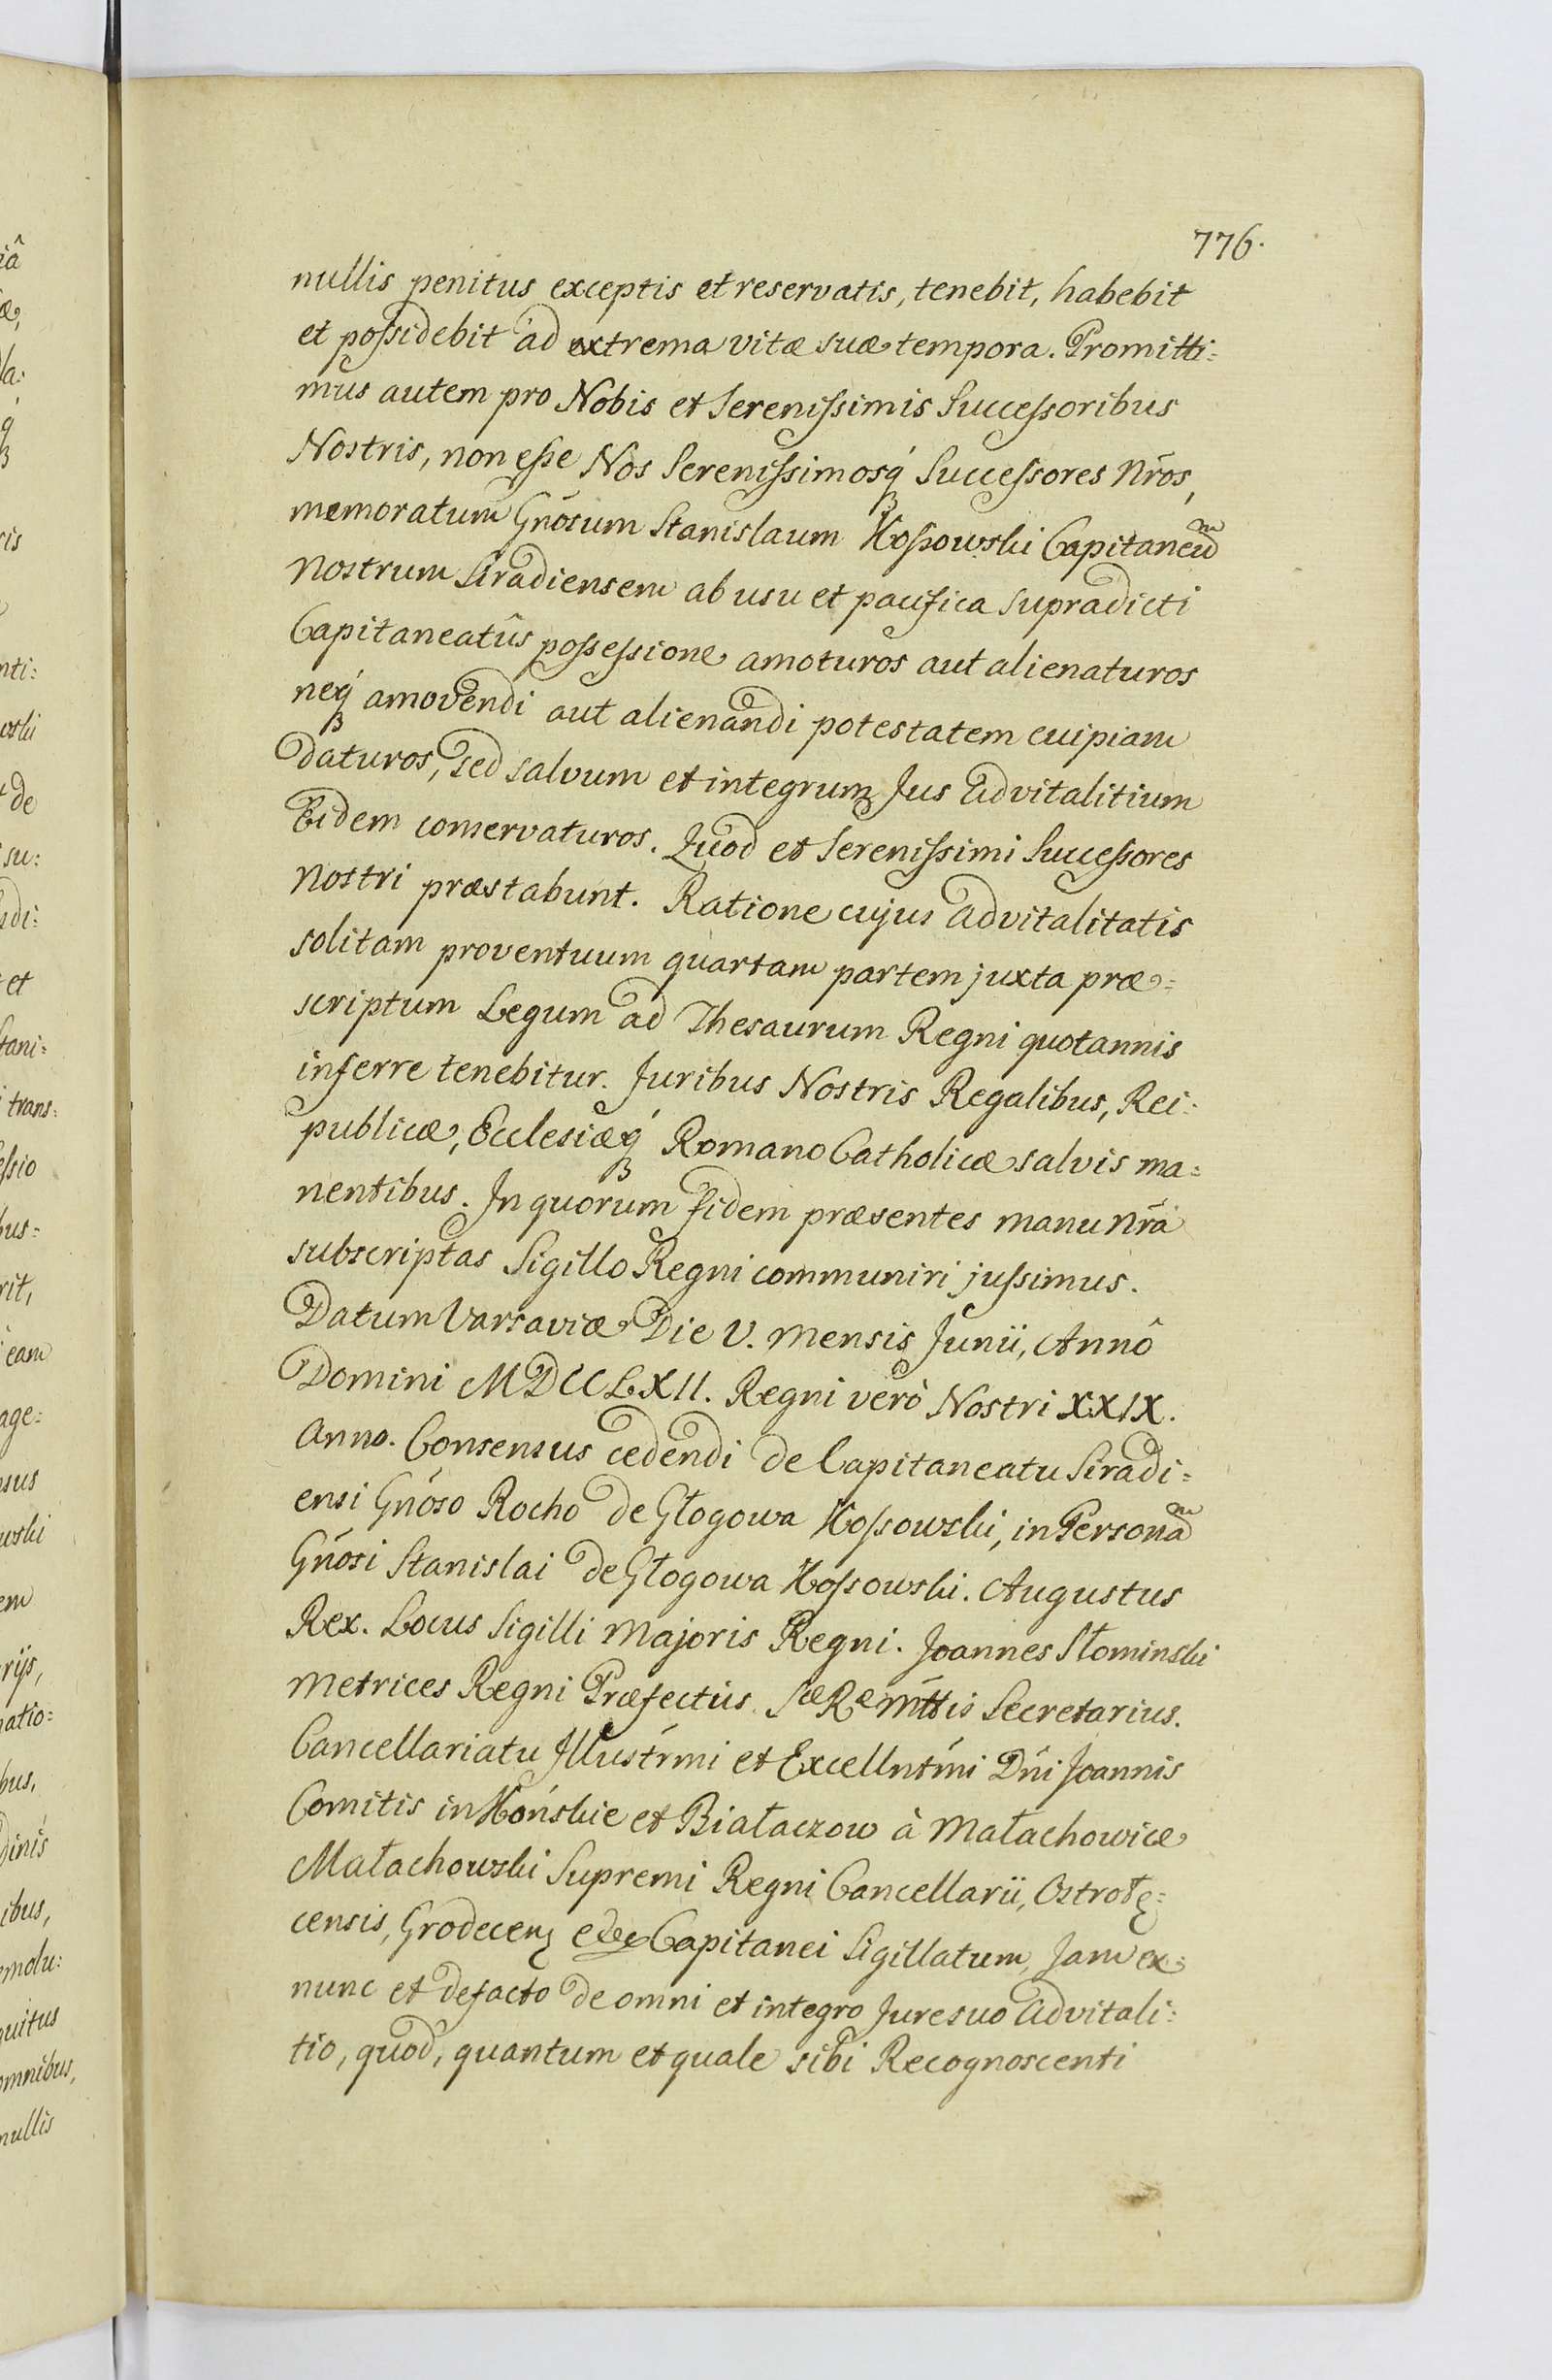 776.
nullis penitus exceptis et reservatis, tenebit, habebit
et possidebit ad extrema vitæ suæ tempora. Promitti=
mus autem pro Nobis et Serenissimis Successoribus
Nostris, non esse Nos Serenissimosq́ Successores Nr̃os,
memoratum Gnõsum Stanislaum Kossowski Capitaneũ
Nostrum Siradiensem ab usu et pacifica supradicti
Capitaneatûs possessione amoturos aut alienaturos
neq́ amovendi aut alienandi potestatem cuipiam
daturos, sed salvum et integrum Jus advitalitium
Eidem conservaturos. Quod et Serenissimi Successores
Nostri præstabunt. Ratione cujus advitalitatis
solitam proventuum quartam partem juxta præ=
scriptum Legum ad Thesaurum Regni quotannis
inferre tenebitur. Juribus Nostris Regalibus, Rei=
publicæ, Ecclesiæq́ Romano Catholicæ salvis ma=
nentibus. In quorum fidem præsentes manu Nr̃a
subscriptas Sigillo Regni communiri jussimus.
Datum Varsaviæ Die V. Mensis Junii, Annô
Domini MDCCLXII. Regni verò Nostri XXIX.
Anno. Consensus cedendi de Capitaneatu Siradi=
ensi Gnõso Rocho de Głogowa Kossowski, in Personã
Gnõsi Stanislai de Głogowa Kossowski. Augustus
Rex. Locus Sigilli Majoris Regni. Joannes Słominski
Metrices Regni Præfectus. Sæ Ræ Mttis Secretarius.
Cancellariatu Illustr̃mi et Excellntm̃i Dñi Joannis
Comitis in Końskie et Białaczow à Małachowice
Małachowski Supremi Regni Cancellarii, Ostrołę=
censis, Grodecen Capitanei Sigillatum, Jam ex=
nunc et defacto de omni et integro Jure suo advitali=
tio, quod, quantum et quale sibi Recognoscenti